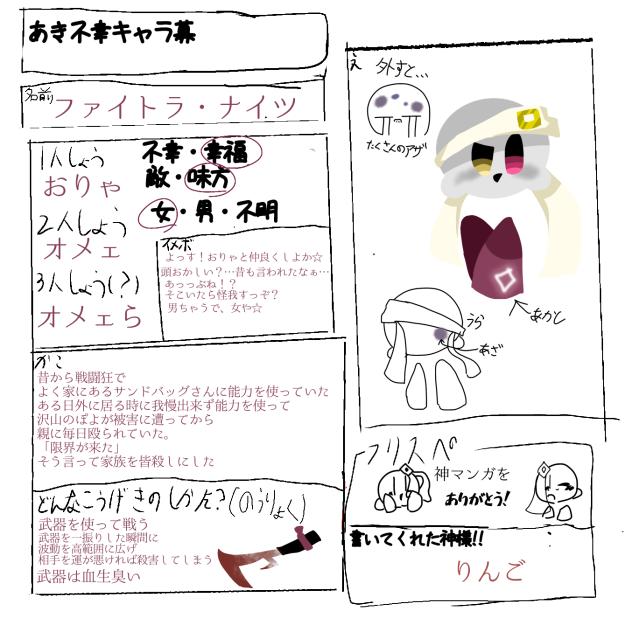 あき不幸キャラ募
名前
ファイトラ・ナイツ
1人しょう
おりゃ
2人しょう
オメェ
3人しょう(?)
オメェら
不幸・幸福
敵・味方
女・男・不明
イメボ
よっす！おりゃと仲良くしよか☆
頭おかしい？…昔も言われたなぁ…
あっっぶね！？
そこいたら怪我すっぞ？
男ちゃうで、女や☆
かこ
昔から戦闘狂で
よく家にあるサンドバッグさんに能力を使っていた
ある日外に居る時に我慢出来ず能力を使って
沢山のぽよが被害に遭ってから
親に毎日殴られていた。
「限界が来た」
そう言って家族を皆殺しにした
どんなこうげきのしかた?(のうりょく)
武器を使って戦う
武器を一振りした瞬間に
波動を高範囲に広げ
相手を運が悪ければ殺害してしまう
武器は血生臭い
え
外すと…
たくさんのアザ
うら
あざ
あかと
フリスペ
神マンガを
ありがとう！
書いてくれた神様!!
りんご